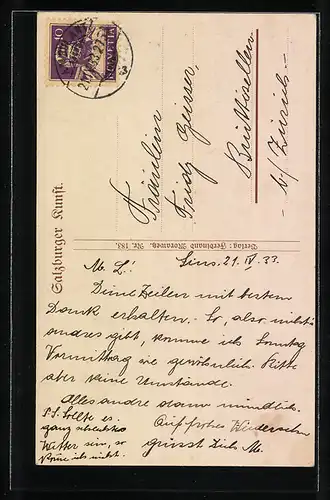 10
HELVETIA
Salzburger Kunst.
Verlag: Ferdinand Morawetz. Nr. 183.
Fräulein
Fridy Geisser,
Brüttisellen
b/ Zürich
Sins, 21. IV. 33.
M. L!
Deine Zeilen mit bestem
Dank erhalten. So, also nichts
andres gibt, komme ich Sonntag
Vormittag wie gewöhnlich. Bitte
aber keine Umstände.
Alles andre dann mündlich.
Auf frohes Wiedersehn
grüsst Dich M.
P.S. Sollte es
ganz schlechtes
Wetter sein, so
komme ich nicht.